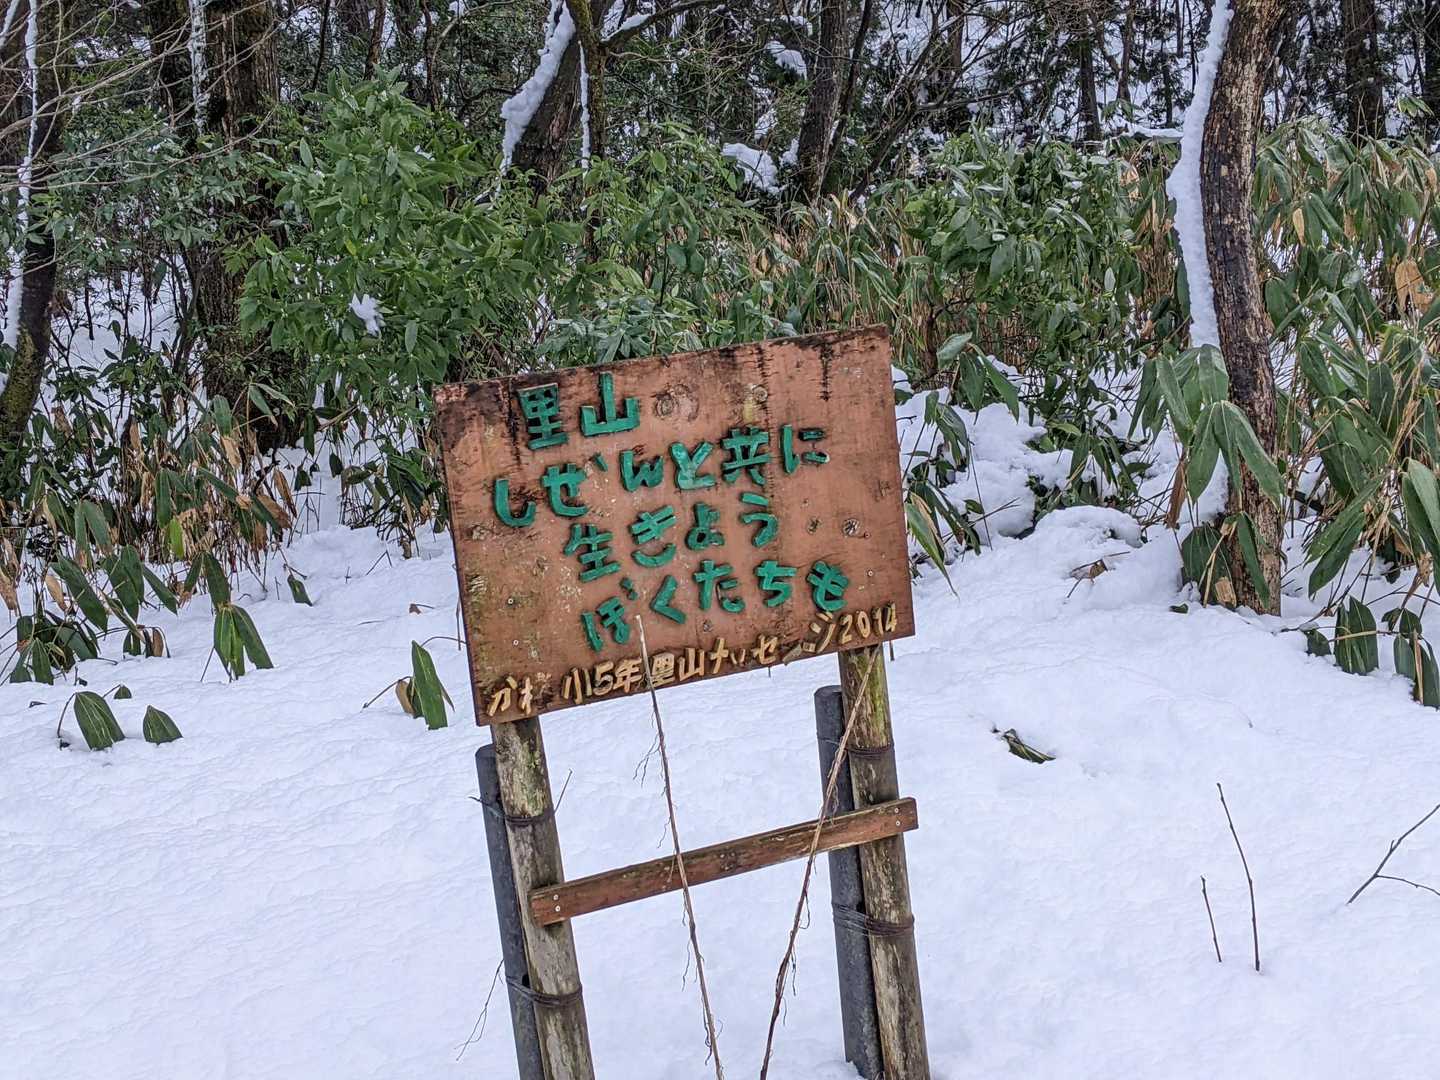 里山
しぜんと共に
生きよう
ぼくたちも
小5年里山メッセージ2014